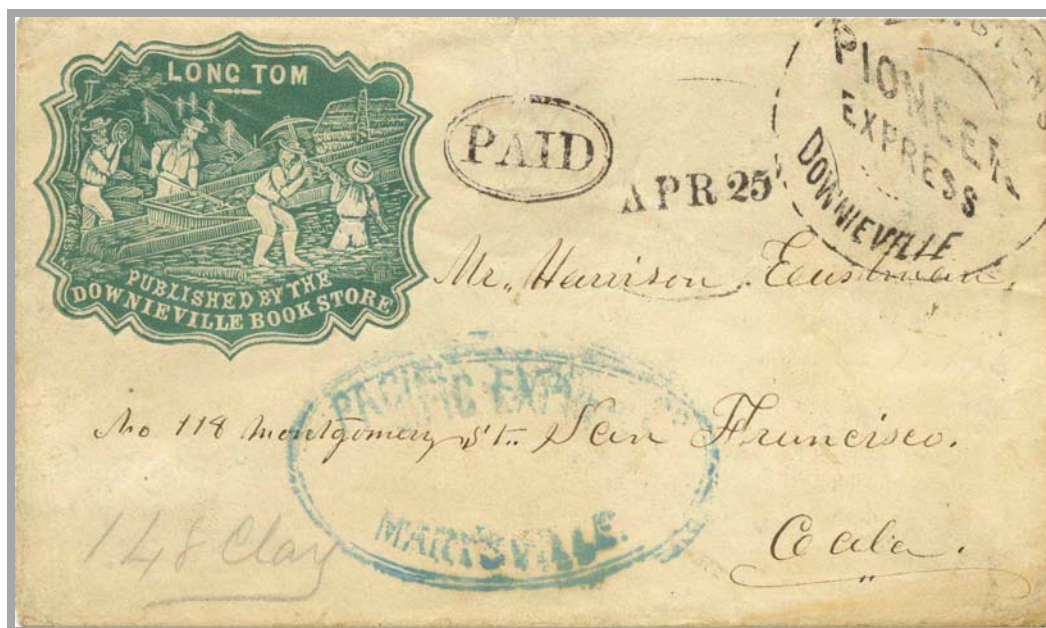 LONG TOM
PUBLISHED BY THE
DOWNIEVILLE BOOK STORE
PAID
APR 25
PIONEER
EXPRESS
DOWNIEVILLE
Mr. Harrison Eastman.
No 118 Montgomery St. San Francisco.
PACIFIC EXPRESS
MARYSVILLE.
Cala.
148 Clay